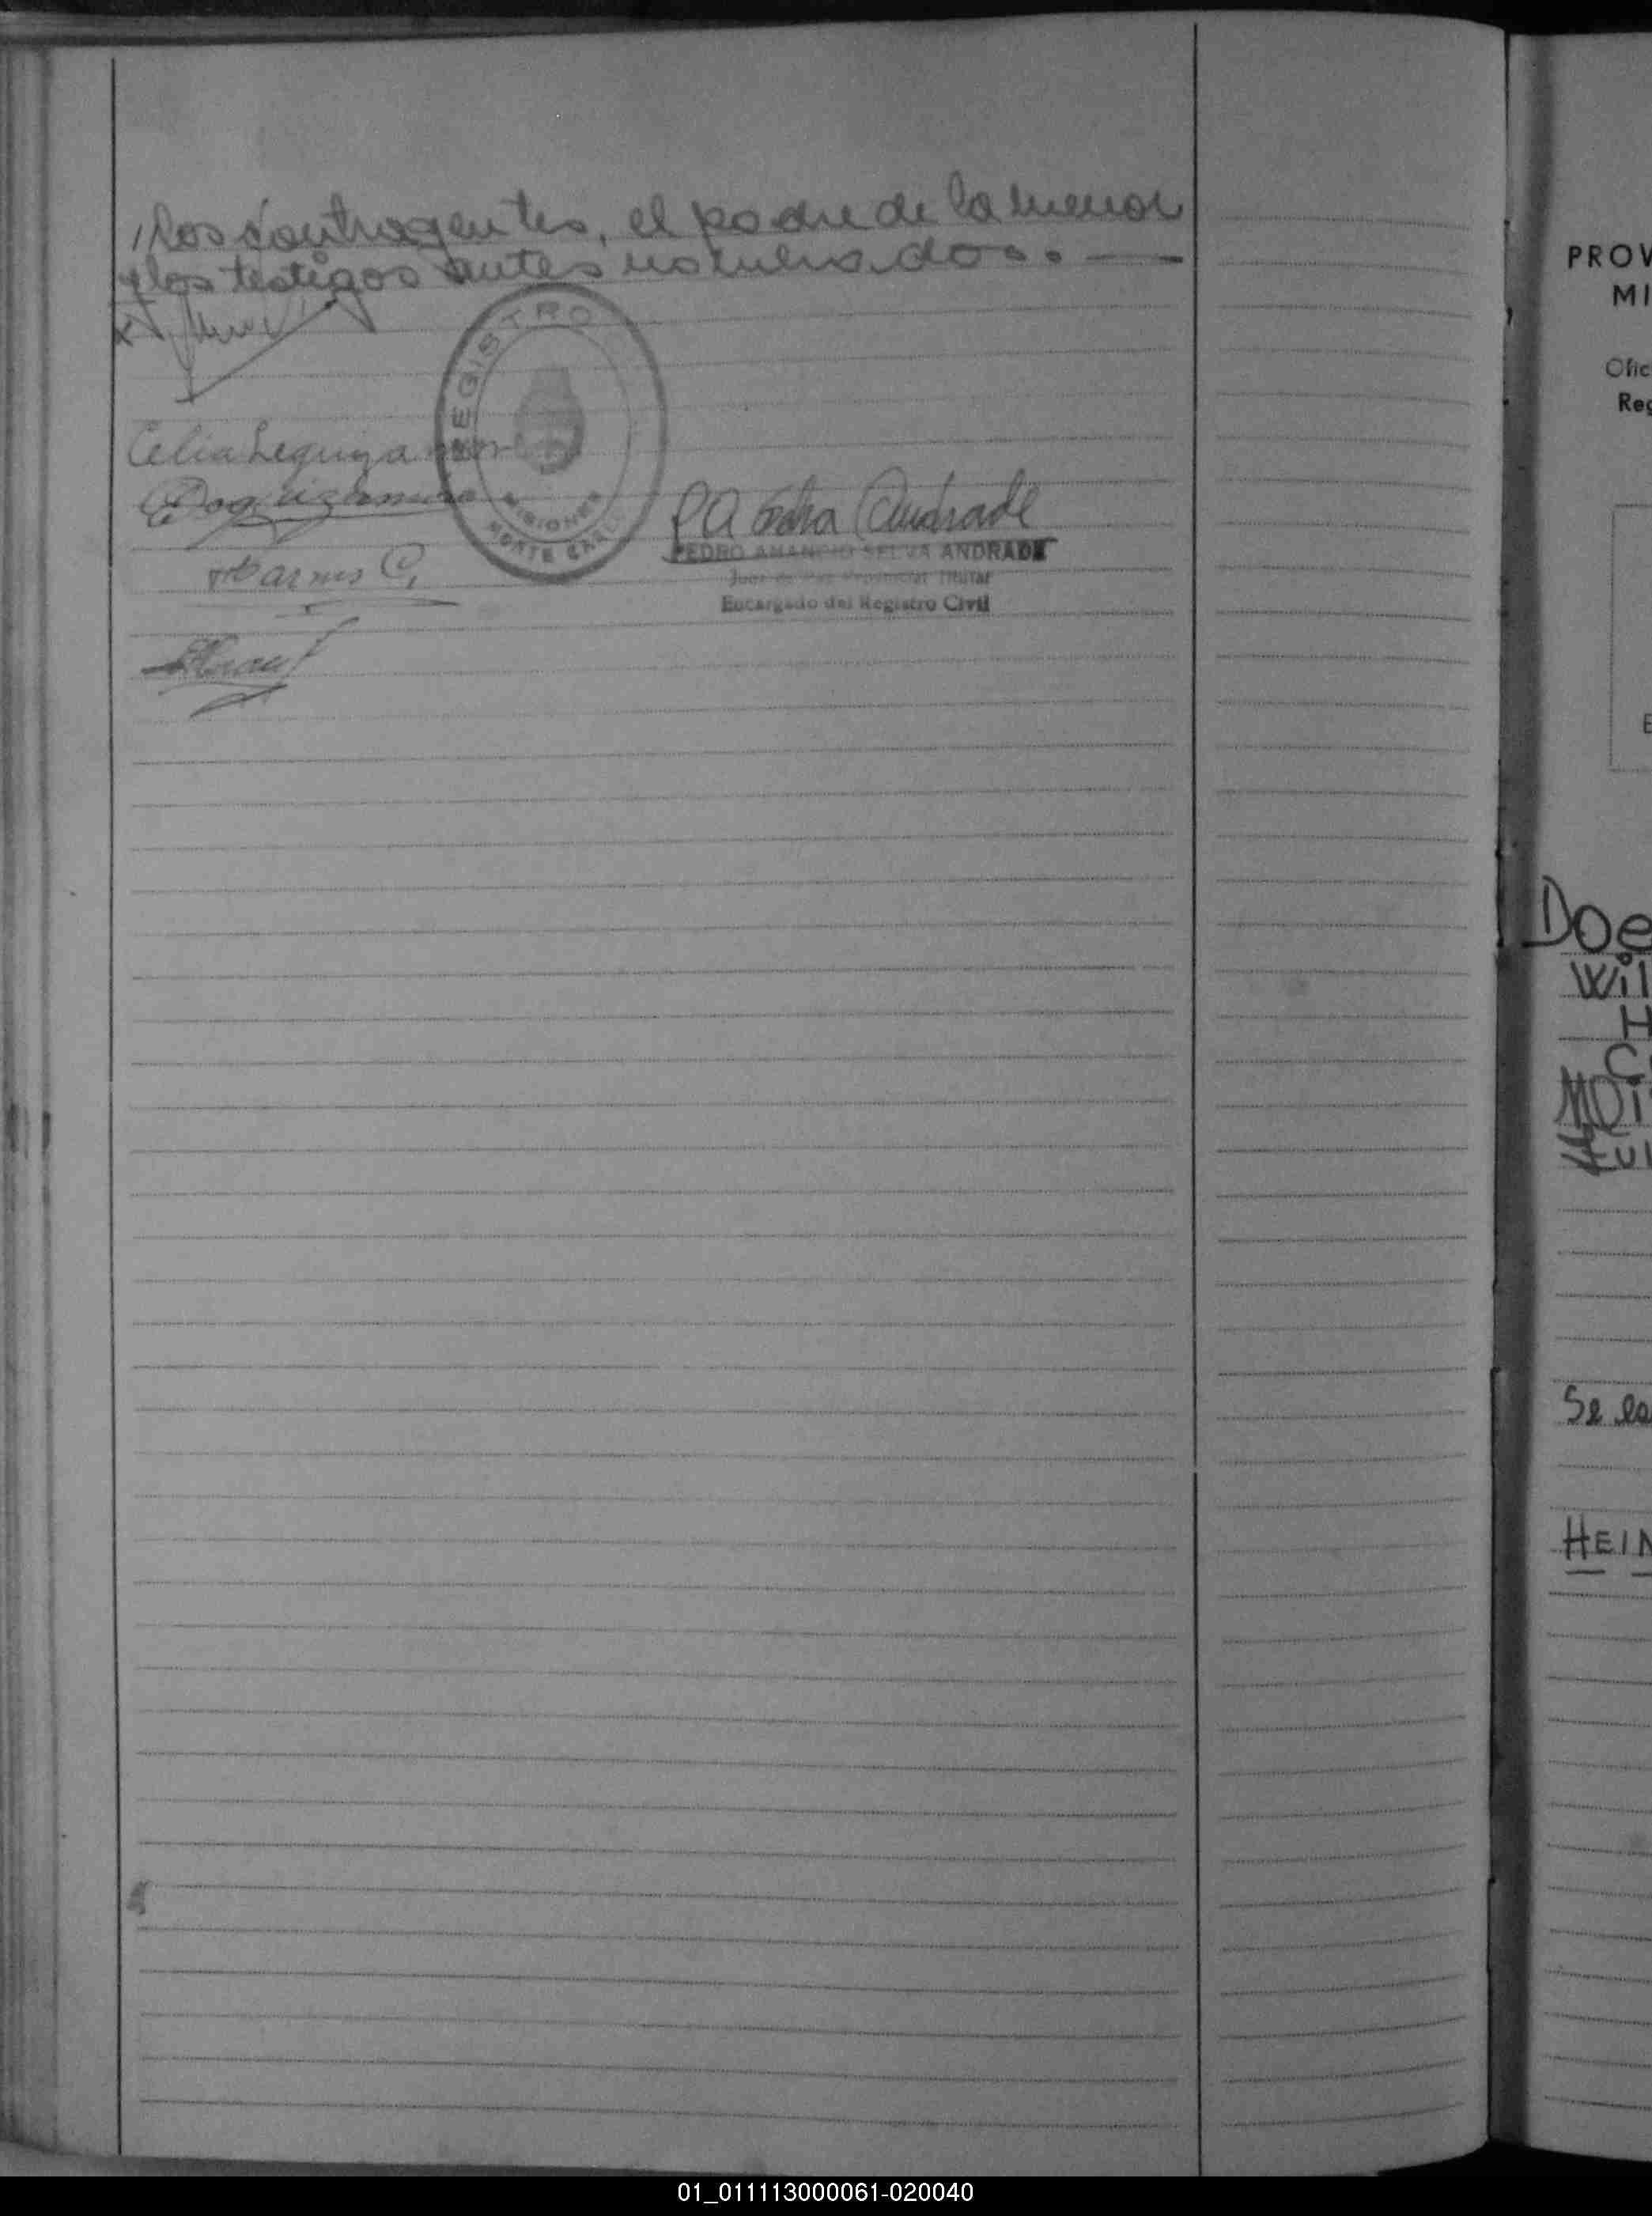 los contrayentes, el padre de la menor
y los testigos antes nombrados. —
REGISTRO
MISIONES
MONTE CARLO
Celia Leguizamón
PA Selva Andrade
PEDRO AMANCIO SELVA ANDRADE
Juez de Paz Provincial Titular
Encargado del Registro Civil
Harms C.
PROV
MI
Ofic
Reg
E
Doe
Wil
H
C
Se le
HEIN
01_011113000061-020040